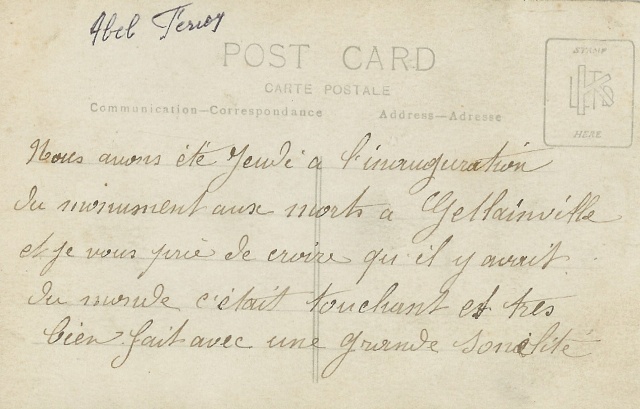 Abel
POST CARD
CARTE POSTALE
Communication—Correspondance Address—Adresse
STAMP
HERE
Nous avons été Jeudi a l'inauguration
du monument aux morts a Gellainville
et je vous prie de croire qu'il y avait
du monde c'était touchant et tres
bien fait avec une grande